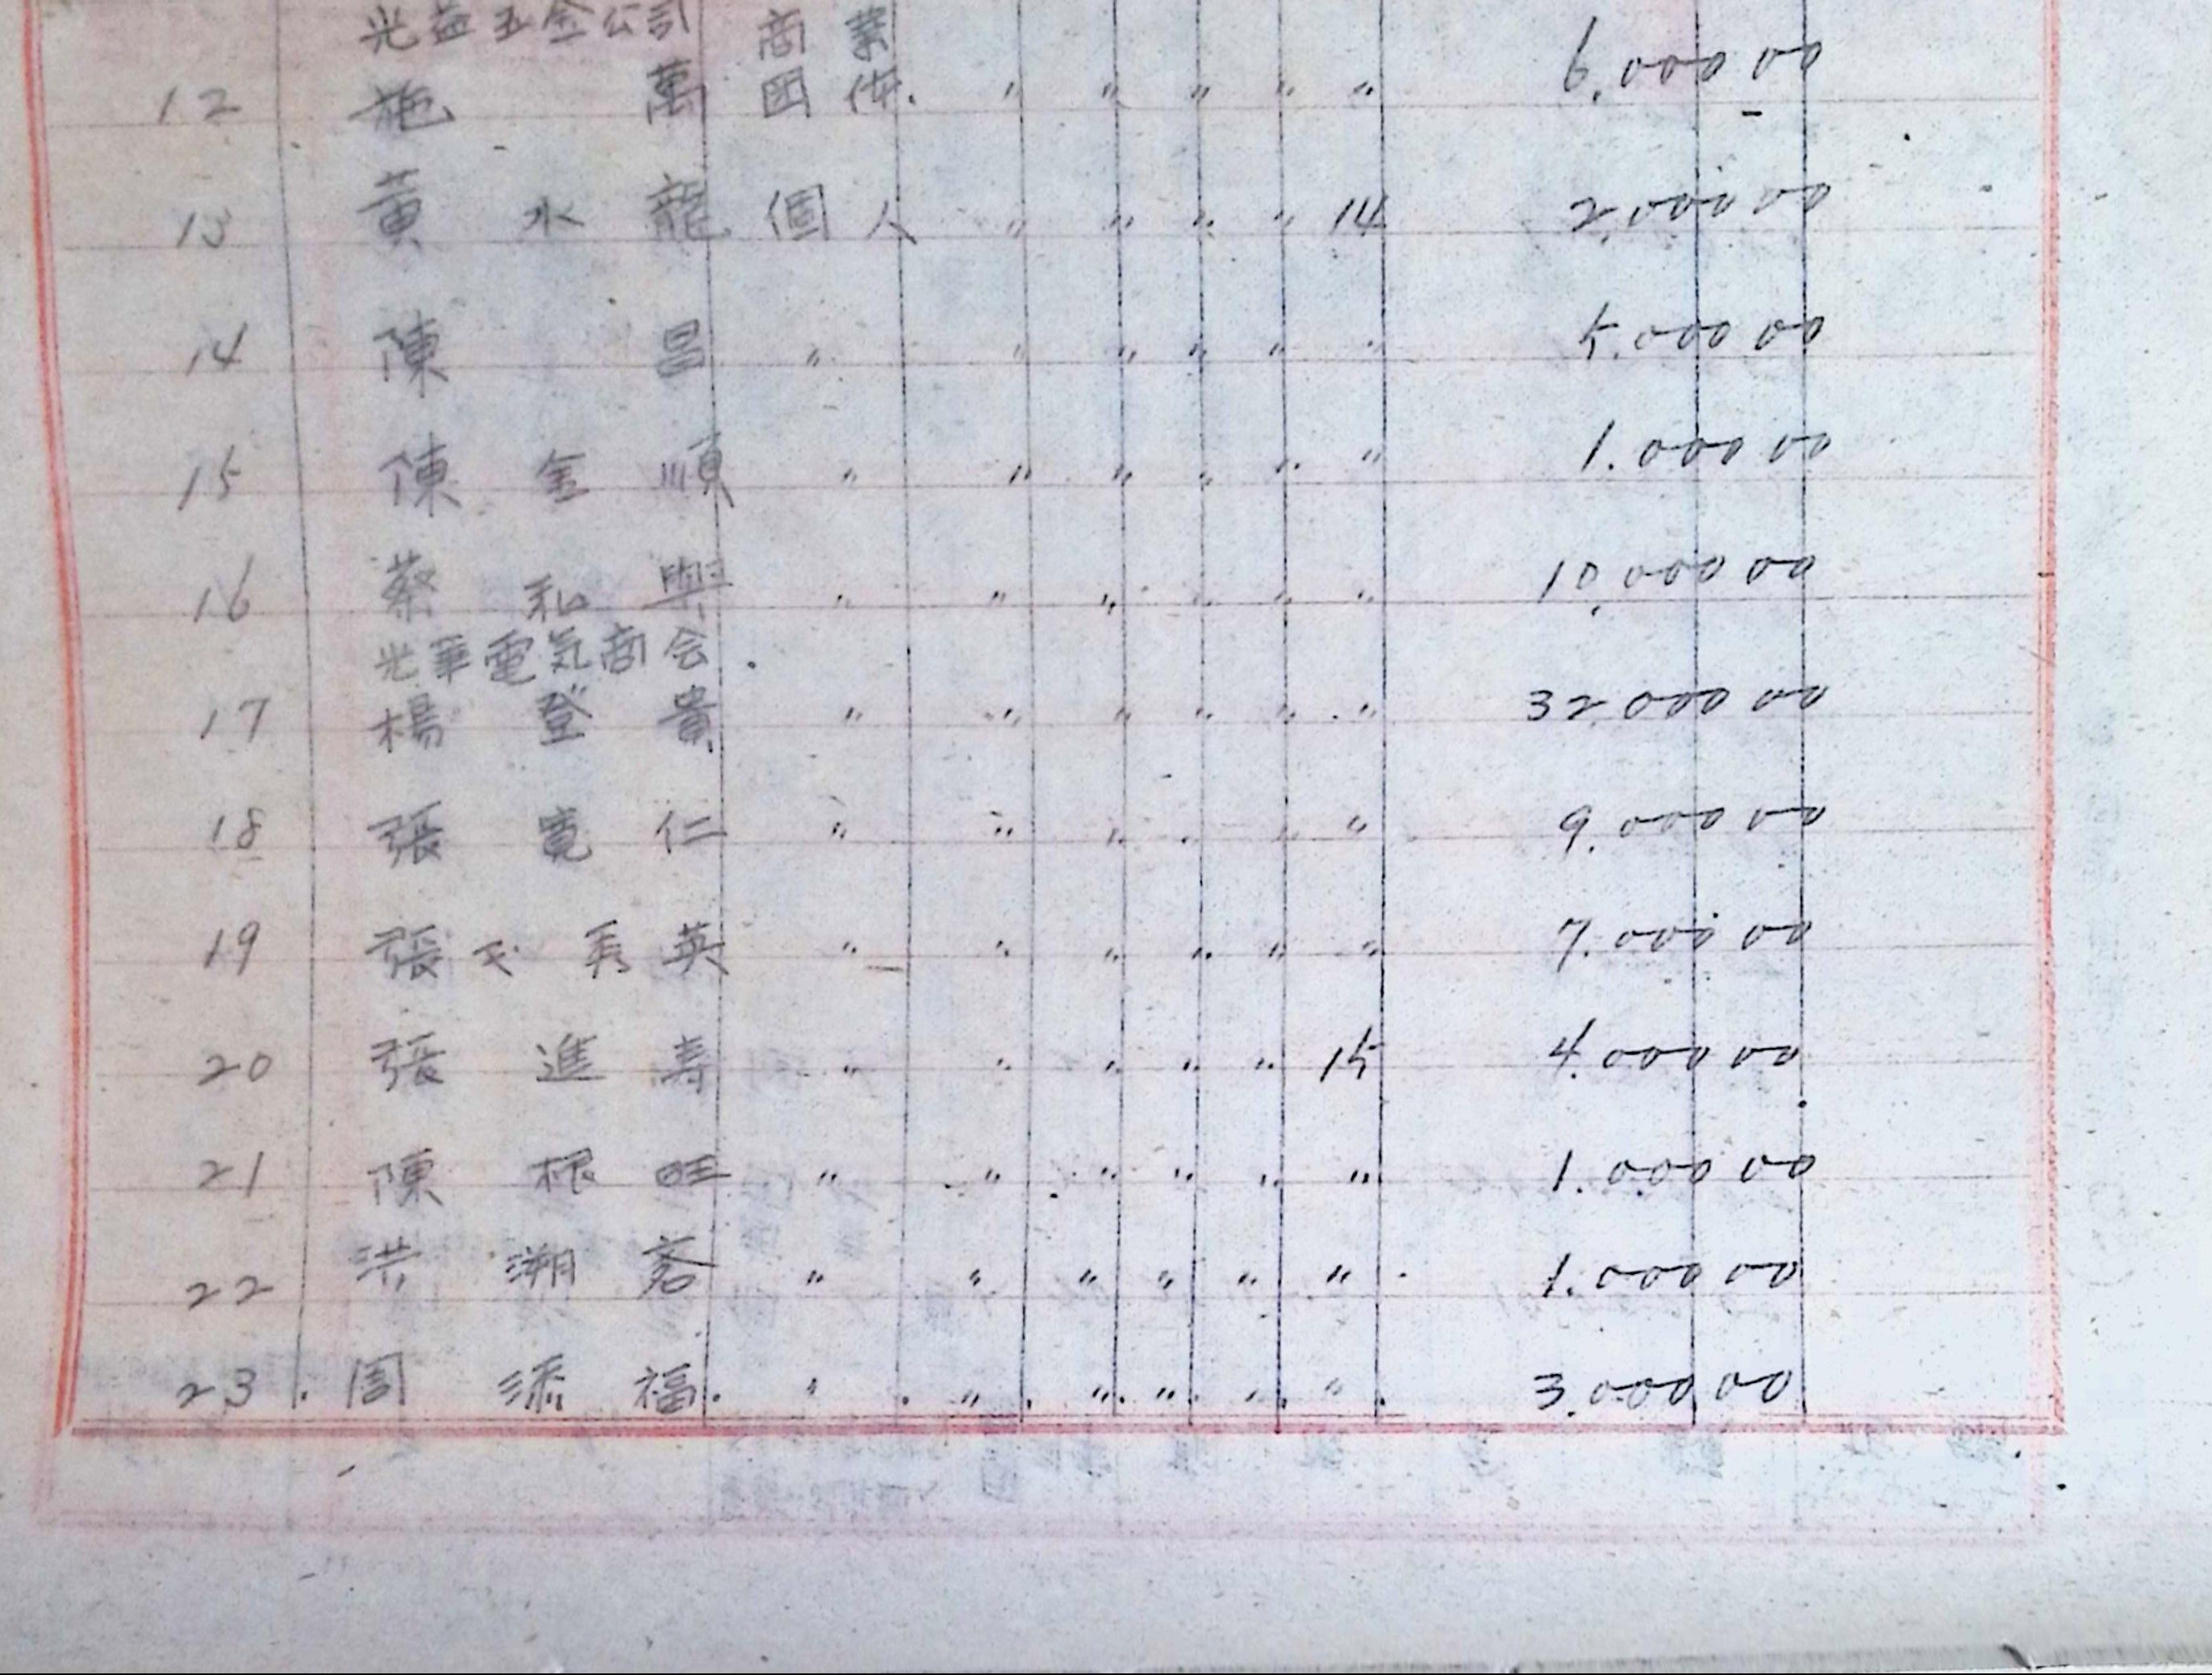 光益五金公司 商業
12 施 萬 団体. " " " " " 6.000 00
13 黃 水 龍 個人 " " " " 14 2.000 00
14 陳 昌 " " " " " " 5.000 00
15 陳 金 順 " " " " " " 1.000 00
16 蔡 私 興 " " " " " " 10.000 00
光華電気商会
17 楊 登 貴 " " " " " " 32.000 00
18 張 寬 仁 " " " " " " 9.000 00
19 張 氏 秀 英 " " " " " " 7.000 00
20 張 進 寿 " " " " " 15 4.000 00
21 陳 根 旺 " " " " " " 1.000 00
22 洪 溯 " " " " " " 1.000 00
23 周 添 福 " " " " " " 3.000 00